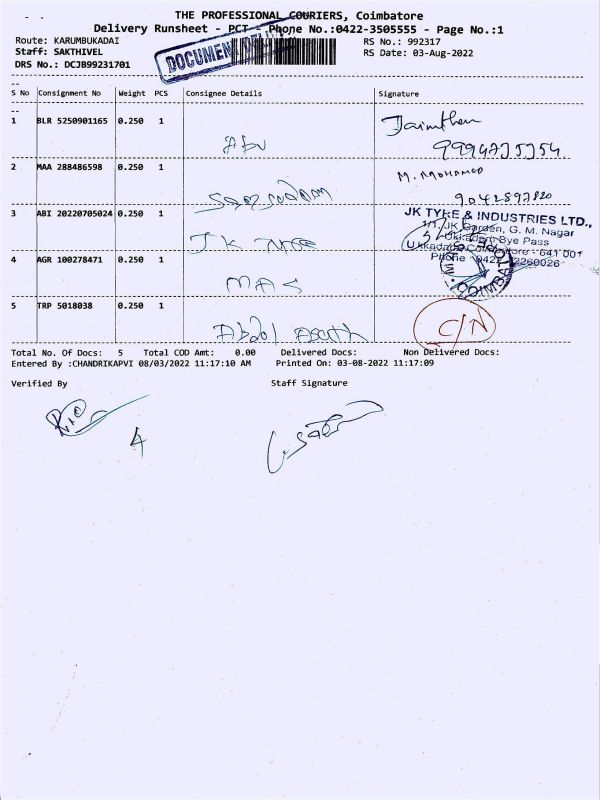 THE PROFESSIONAL COURIERS, Coimbatore
Delivery Runsheet - PCT - Phone No.:0422-3505555 - Page No.:1
Route: KARUMBUKADAI RS No.: 992317
Staff: SAKTHIVEL RS Date: 03-Aug-2022
DRS No.: DCJB99231701
DOCUMENT
S No Consignment No Weight PCS Consignee Details Signature
1 BLR 5250901165 0.250 1
2 MAA 288486598 0.250 1
M. MOHAMED
9042897820
3 ABI 20220705024 0.250 1
JK TYRE & INDUSTRIES LTD.,
1/1, JK Garden, G. M. Nagar
Ukkadam Bye Pass
Ukkadam, Coimbatore - 641 001
Phone : 0422 - 2260026
4 AGR 100278471 0.250 1
5 TRP 5018038 0.250 1 Abdol C/N
Total No. Of Docs: 5 Total COD Amt: 0.00 Delivered Docs: Non Delivered Docs:
Entered By :CHANDRIKAPVI 08/03/2022 11:17:10 AM Printed On: 03-08-2022 11:17:09
Verified By Staff Signature
4